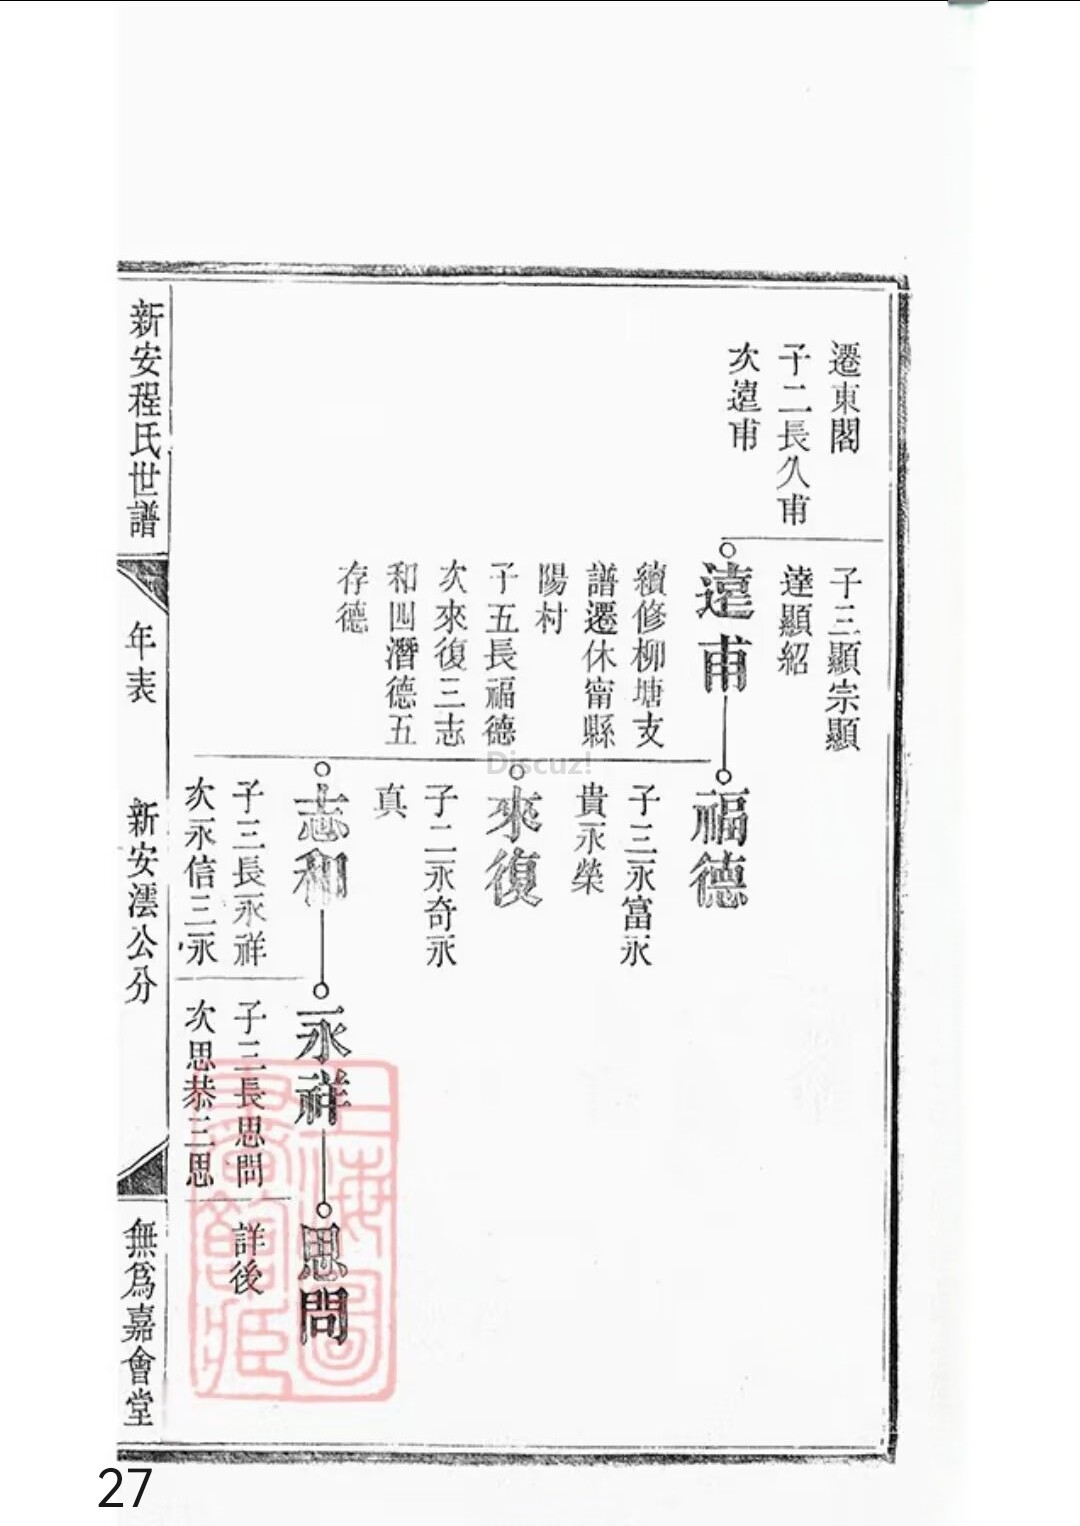 遷東閣
子二長久甫
次遠甫
子三顯宗顯
達顯紹
遠甫
續修柳塘支
譜遷休甯縣
陽村
子五長福德
次來復三志
和四潛德五
存德
福德
子三永富永
貴永榮
來復
子二永奇永
真
志和
子三長永祥
次永信三永
永祥
子三長思問
次思恭三思
思問
詳後
新安程氏世譜
年表
新安澐公分
無爲嘉會堂
上海圖
書館藏
Discuz!
27